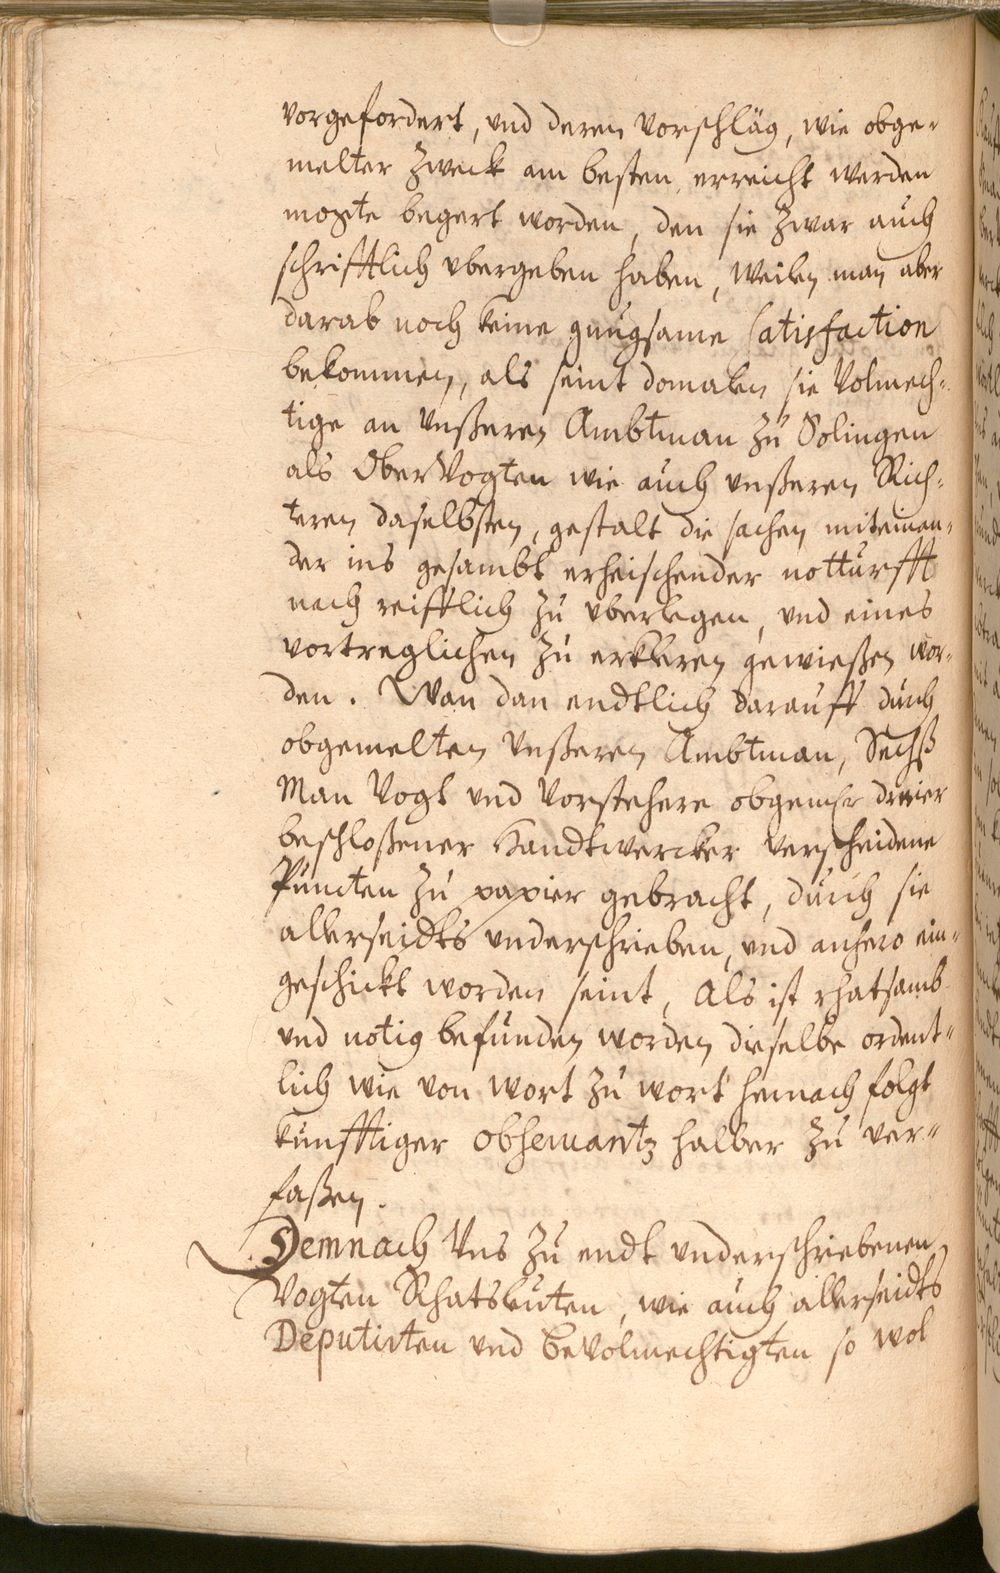 vorgefordert, und deren Vorschläg, wie obge-
melter Zweck am besten erreicht werden
mogte begert worden, den sie zwar auch
schrifftlich ubergeben haben, Weilen man aber
darab noch keine gnugsame Satisfaction
bekommen, als seint domalen sie Volmech-
tige an Unßeren Ambtman zu Solingen
als OberVogten wie auch unßeren Rich-
teren daselbsten, gestalt die sachen miteinan-
der ins gesambt erheischender notturfft
nach reifflich zu uberlegen, und eines
vortreglichen zu erkleren gewießen wor-
den. Wan dan endtlich darauff durch
obgemelten Unßeren Ambtman, Sechß
Man Vogt und Vorstehere obgemlr dreier
beschloßener Handtwercker verscheidene
Puncten zu papier gebracht, durch sie
allerseidts underschrieben, und anhero ein-
geschickt worden seint, Als ist rhatsamb
und notig befunden worden dieselbe ordent-
lich wie von wort zu wort hernach folgt
kunfftiger obseruantz halber zu ver-
faßen.
Demnach Uns zu endt underschriebenen
Vogten Rhatsleuten, wie auch allerseidts
Deputirten und bevolmechtigten so wol